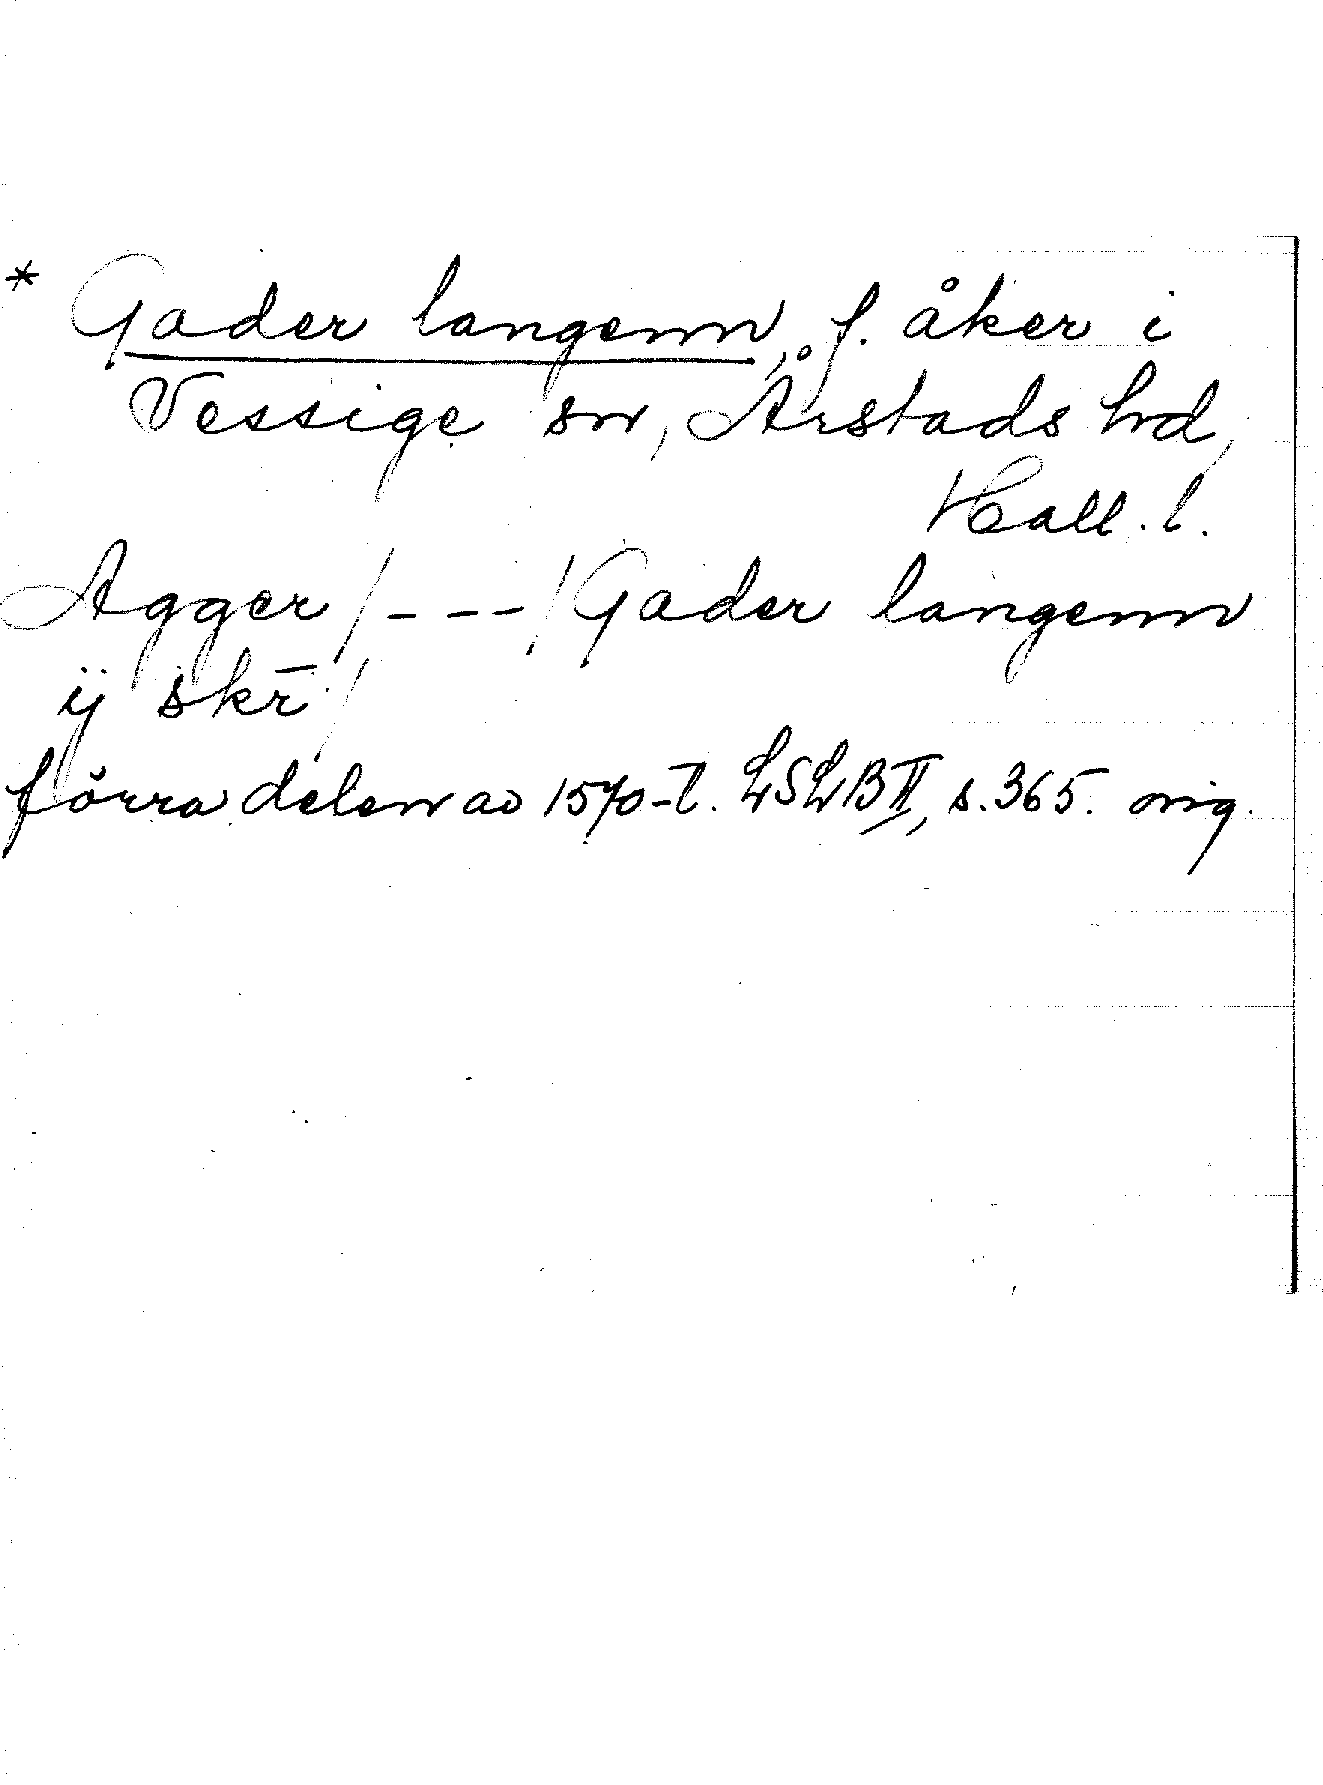 * Gader langenn, f. åker i
Vessige sn, Årstads hd,
Hall. l.
Agger /---/ Gader langenn
ij skr̄ /
förra delen av 1570-t. LSLB II, s. 365. orig.